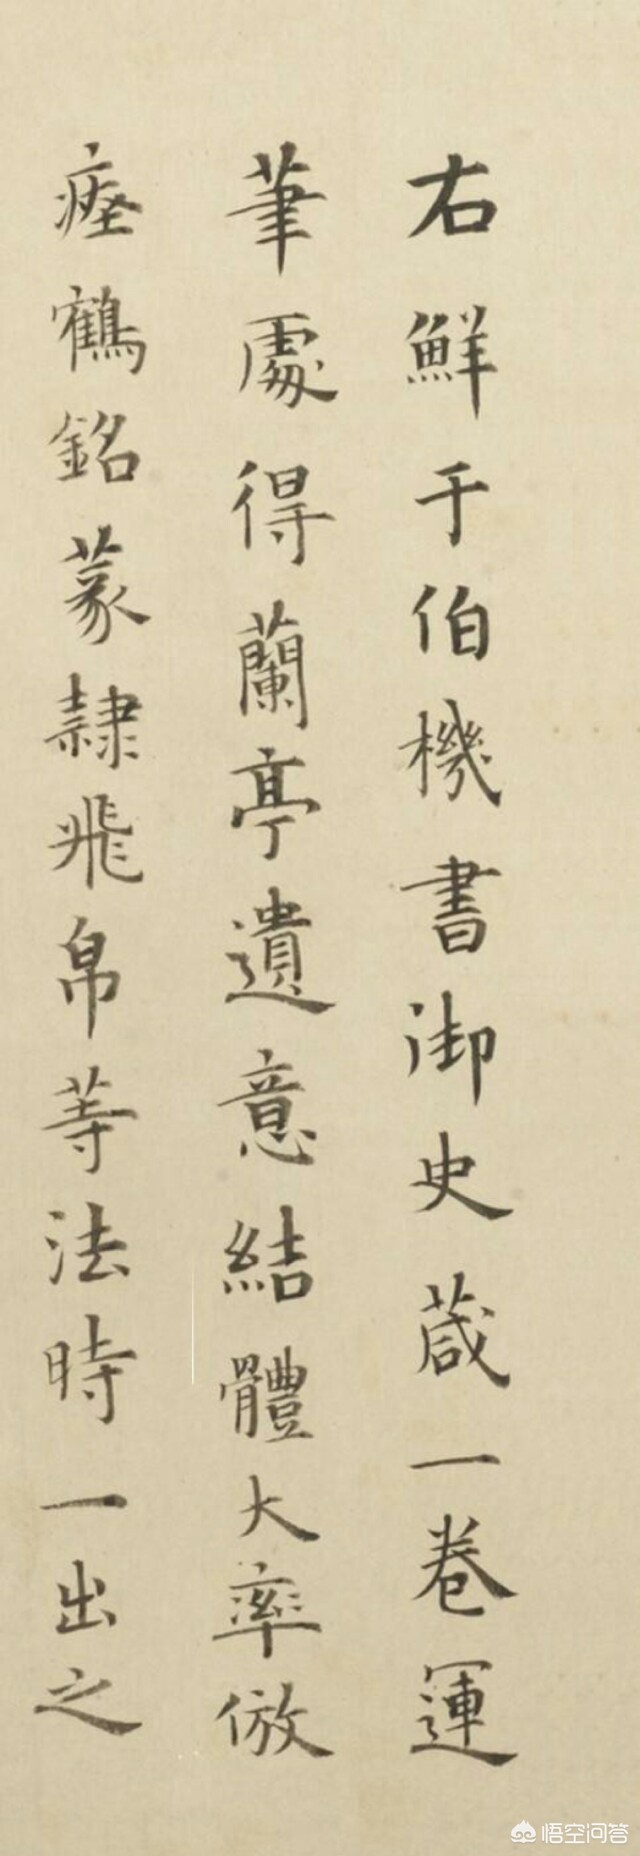 右鮮于伯機書御史葴一卷運
筆處得蘭亭遺意結體大率倣
瘞鶴銘篆隸飛帛等法時一出之
悟空问答